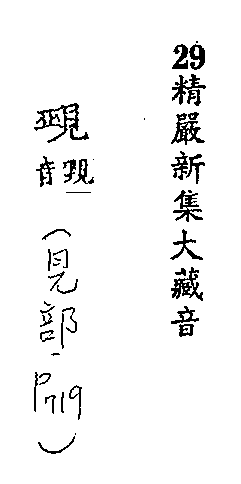 29精嚴新集大藏音
音
(見部·P719)